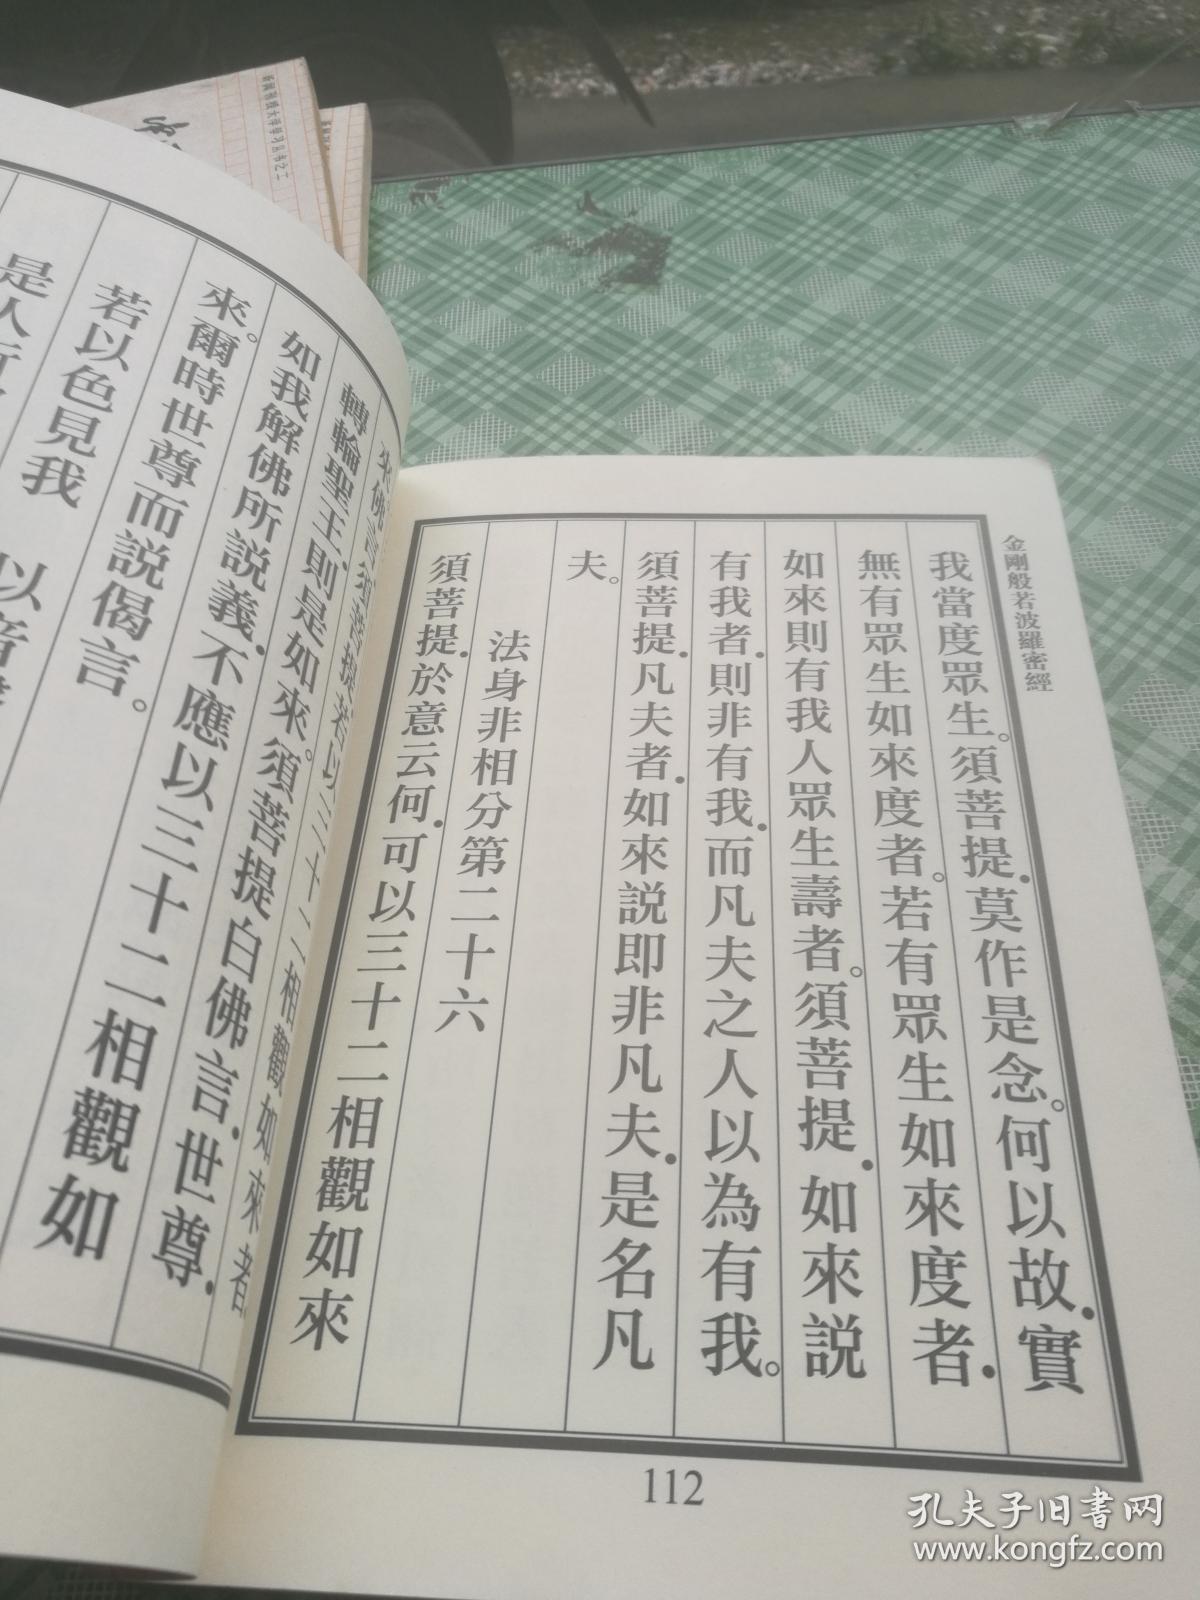 金剛般若波羅密經
我當度眾生。須菩提．莫作是念。何以故．實
無有眾生如來度者。若有眾生如來度者．
如來則有我人眾生壽者。須菩提．如來説
有我者．則非有我．而凡夫之人以為有我。
須菩提．凡夫者．如來説即非凡夫．是名凡
夫。
法身非相分第二十六
須菩提．於意云何．可以三十二相觀如來
112
來佛言須菩提若以三十二相觀如來者
轉輪聖王．則是如來。須菩提白佛言．世尊．
如我解佛所説義．不應以三十二相觀如
來。爾時世尊而説偈言。
若以色見我
是人行
以音
孔夫子旧书网
www.kongfz.com